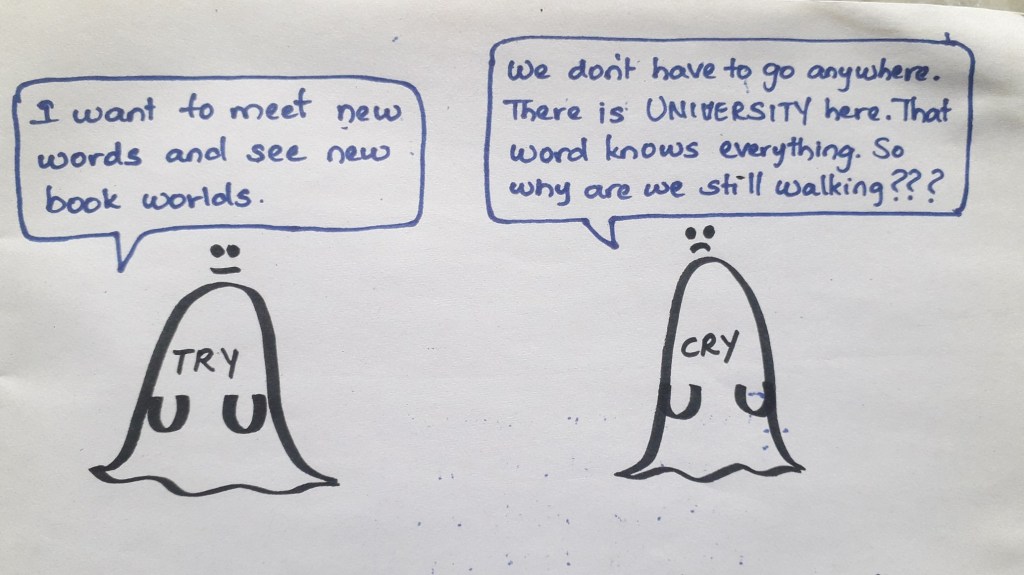 I want to meet new
words and see new
book worlds.
We don't have to go anywhere.
There is UNIVERSITY here. That
word knows everything. So
why are we still walking???
TRY
CRY